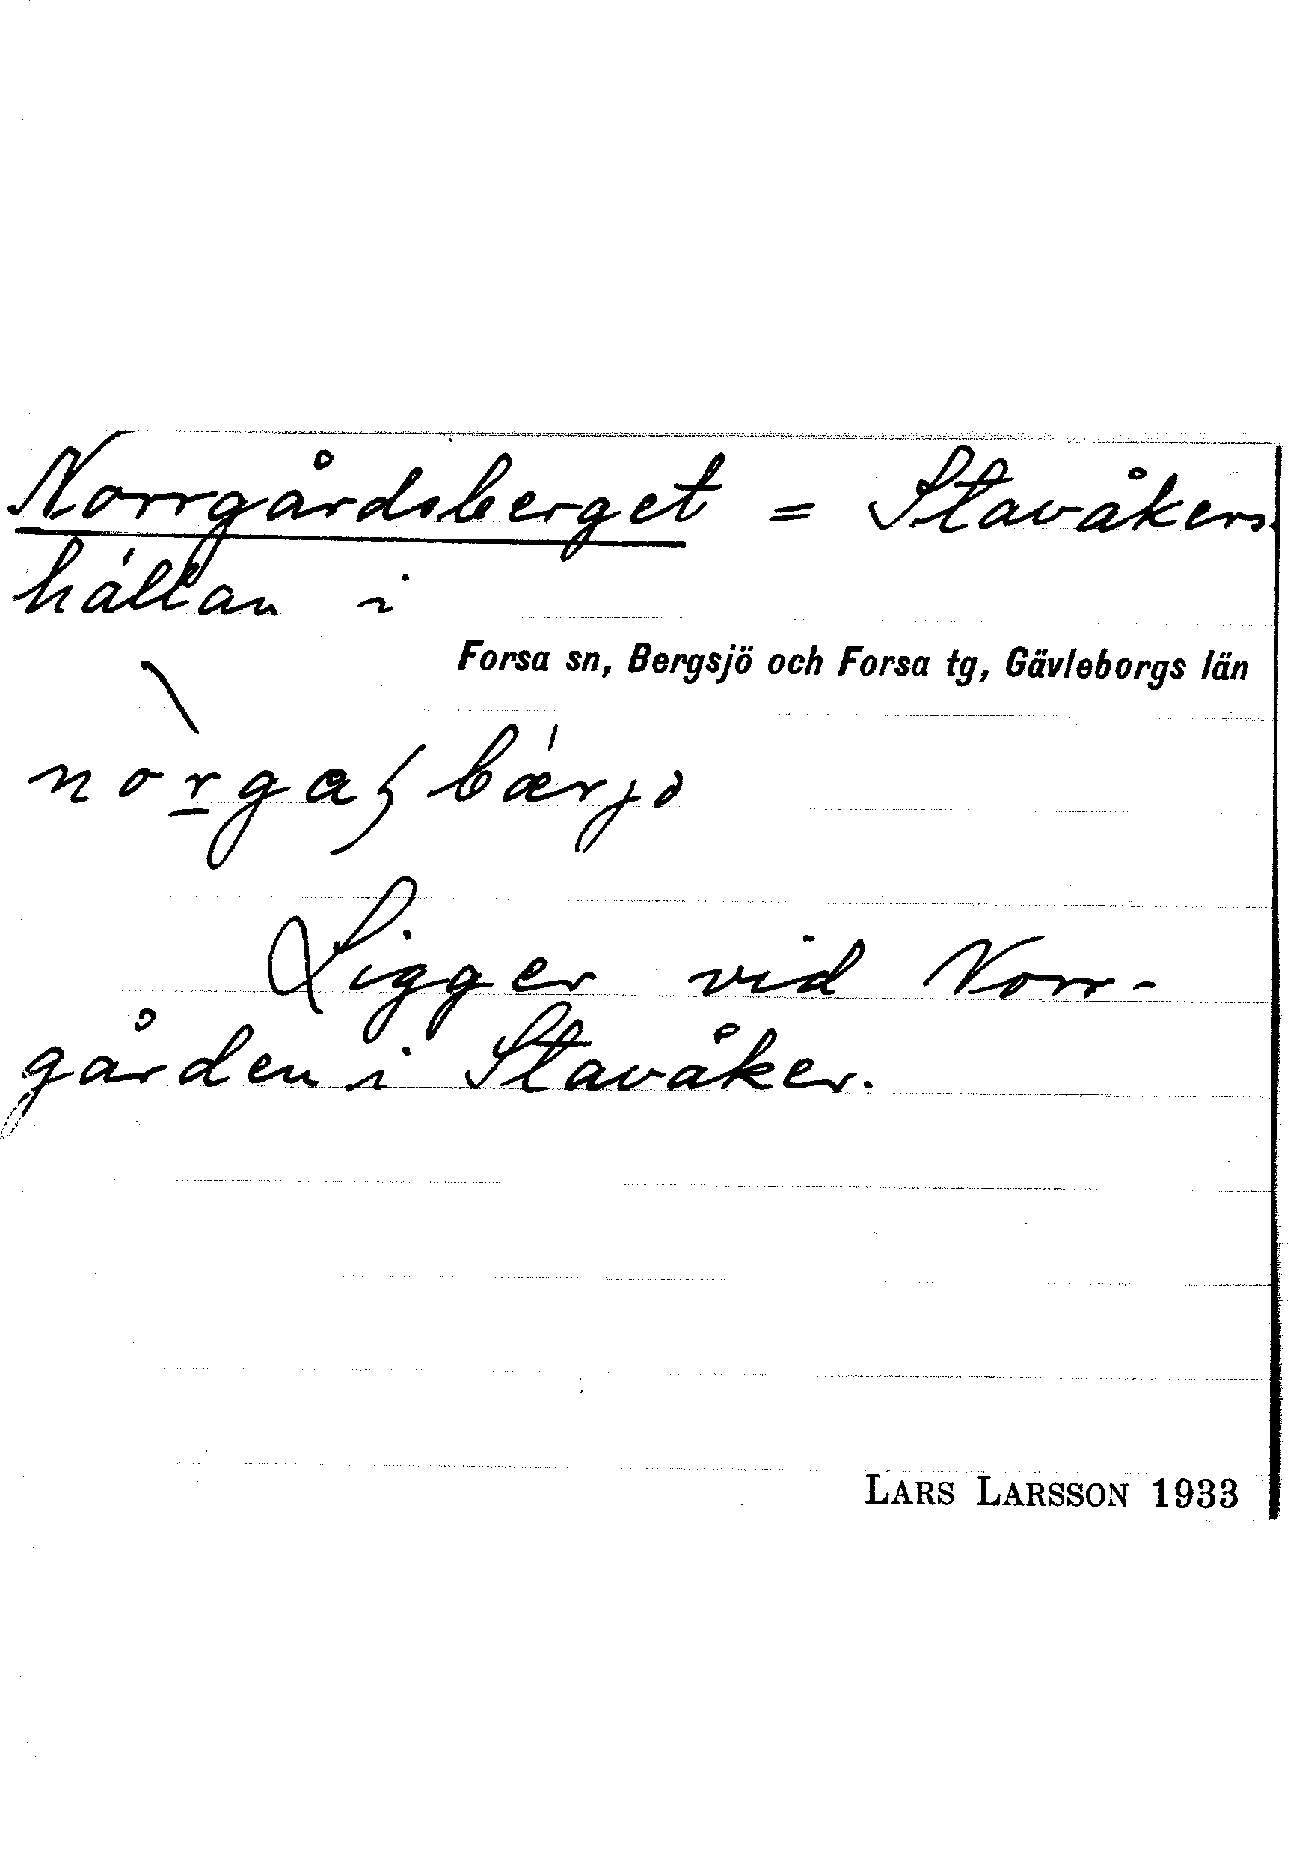 Norrgårdsberget = Stavåkers-
hällan i
Forsa sn, Bergsjö och Forsa tg, Gävleborgs län
Ligger vid Norr-
gården i Stavåker.
LARS LARSSON 1933